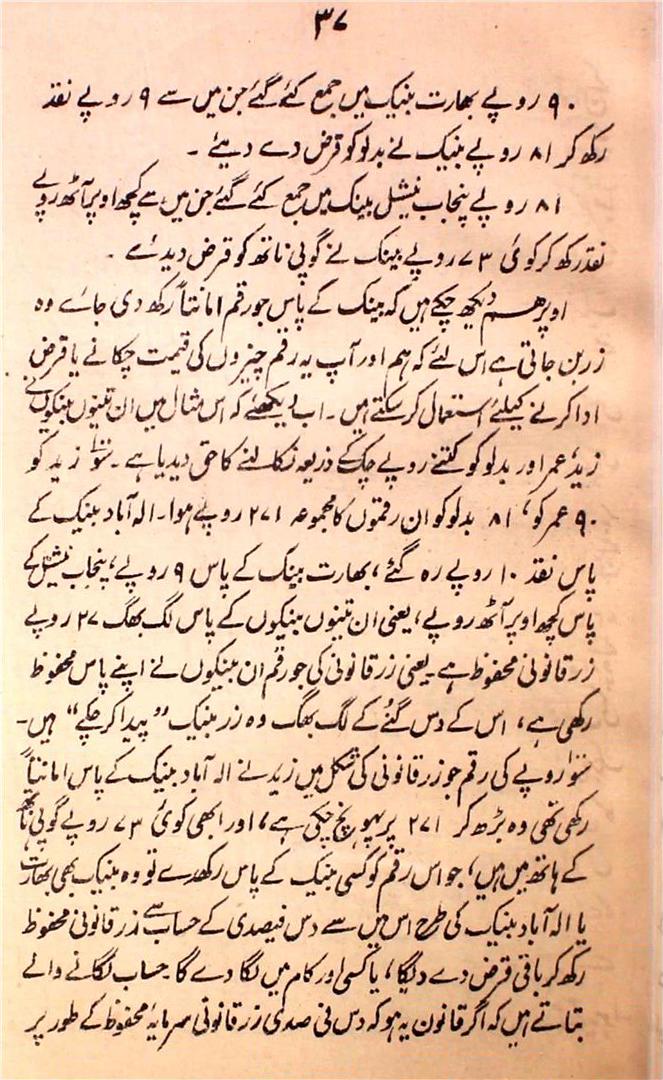 ۳۷
۹۰ روپے بھارت بنیک میں جمع کئے گئے جن میں سے ۹ روپے نقد
رکھ کر ۸۱ روپے بنیک نے بدلو کو قرض دے دیئے ۔
۸۱ روپے پنجاب نیشنل بینک میں جمع کئے گئے جن میں سے کچھ اوپر آٹھ روپے
نقد رکھ کر کوئی ۷۳ روپے بینک نے گوپی ناتھ کو قرض دیدئے ۔
اوپر ہم دیکھ چکے ہیں کہ بینک کے پاس جو رقم امانتاً رکھ دی جائے وہ
زر بن جاتی ہے اس لئے کہ ہم اور آپ یہ رقم چیزوں کی قیمت چکانے یا قرض
ادا کرنے کیلئے استعمال کر سکتے ہیں ۔ اب دیکھئے کہ اس مثال میں ان تینوں بنیکوں نے
زید، عمر اور بدلو کو کتنے روپے چک کے ذریعہ نکالنے کا حق دیدیا ہے ۔ سو زید کو
۹۰ عمر کو، ۸۱ بدلو کو ان رقموں کا مجموعہ ۲۷۱ روپے ہوا ۔ الہ آباد بنیک کے
پاس نقد ۱۰ روپے رہ گئے، بھارت بینک کے پاس ۹ روپے، پنجاب نیشنل کے
پاس کچھ اوپر آٹھ روپے، یعنی ان تینوں بنیکوں کے پاس لگ بھگ ۲۷ روپے
زر قانونی محفوظ ہے۔ یعنی زر قانونی کی جو رقم ان بنیکوں نے اپنے پاس محفوظ
رکھی ہے، اس کے دس گنے کے لگ بھگ وہ زر بنیک ”پیدا کر چکے“ ہیں۔
سو روپے کی رقم جو زر قانونی کی شکل میں زید نے الہ آباد بنیک کے پاس امانتاً
رکھی تھی وہ بڑھ کر ۲۷۱ پر پہونچ چکی ہے، اور ابھی کوئی ۷۳ روپے گوپی ناتھ
کے ہاتھ میں ہیں، جو اس رقم کو کسی بنیک کے پاس رکھدے تو وہ بنیک بھی بھارت
یا الہ آباد بنیک کی طرح اس میں سے دس فیصدی کے حساب سے زر قانونی محفوظ
رکھ کر باقی قرض دے دیگا، یا کسی اور کام میں لگا دے گا۔ حساب لگانے والے
بتاتے ہیں کہ اگر قانون یہ ہو کہ دس فی صدی زر قانونی سرمایۂ محفوظ کے طور پر